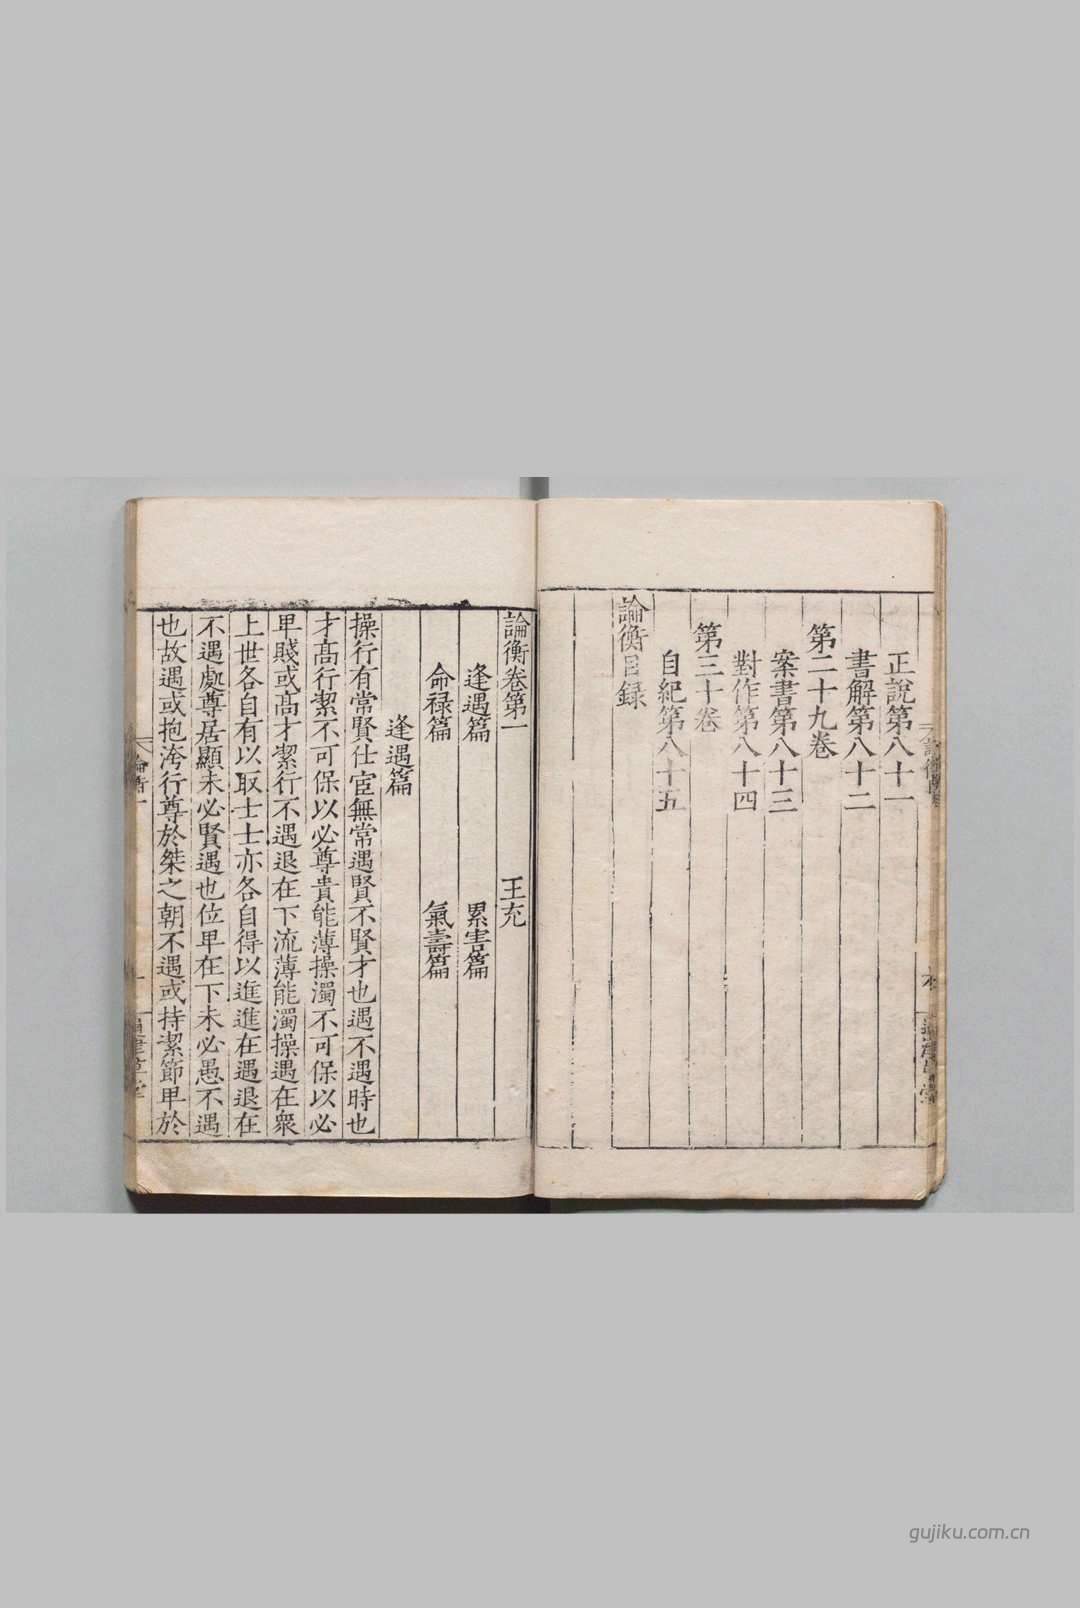 正說第八十一
書解第八十二
第二十九卷
案書第八十三
對作第八十四
第三十卷
自紀第八十五
論衡目録
論衡卷第一 王充
逢遇篇 累害篇
命禄篇 氣壽篇
逢遇篇
操行有常賢仕宦無常遇賢不賢才也遇不遇時也
才髙行潔不可保以必尊貴能薄操濁不可保以必
卑賤或髙才潔行不遇退在下流薄能濁操遇在衆
上世各自有以取士士亦各自得以進進在遇退在
不遇處尊居顯未必賢遇也位卑在下未必愚不遇
也故遇或抱洿行尊於桀之朝不遇或持潔節卑於
論衡一
通津草堂
gujiku.com.cn